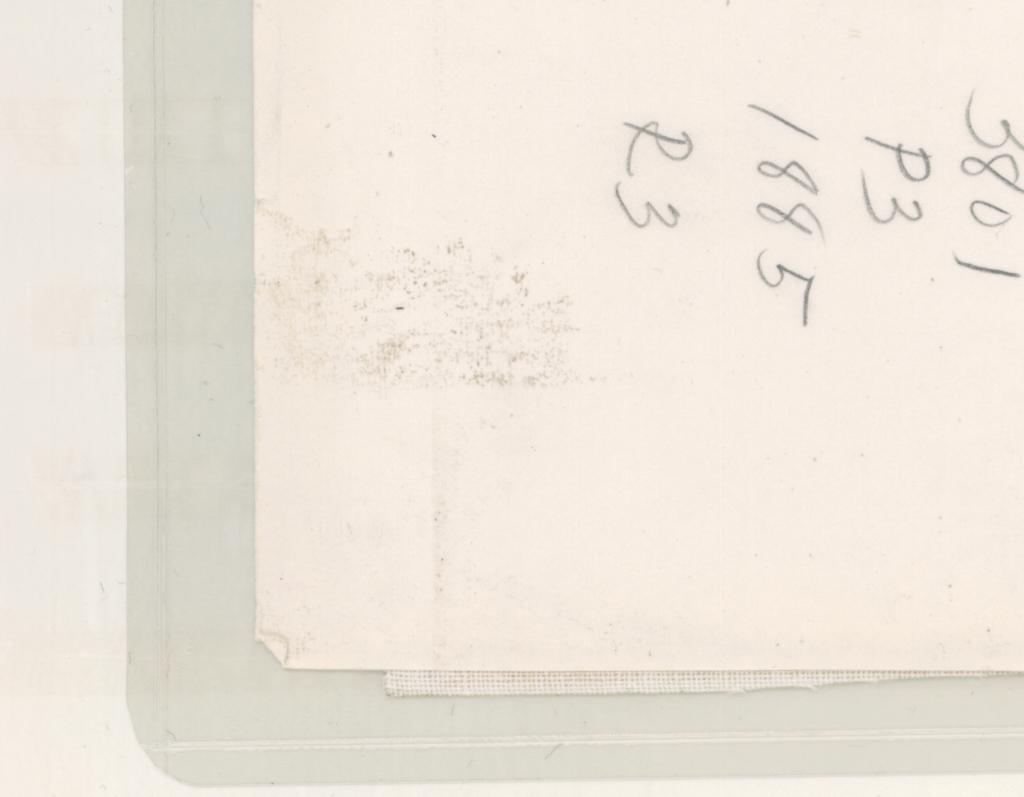 3801
P3
1885
R3